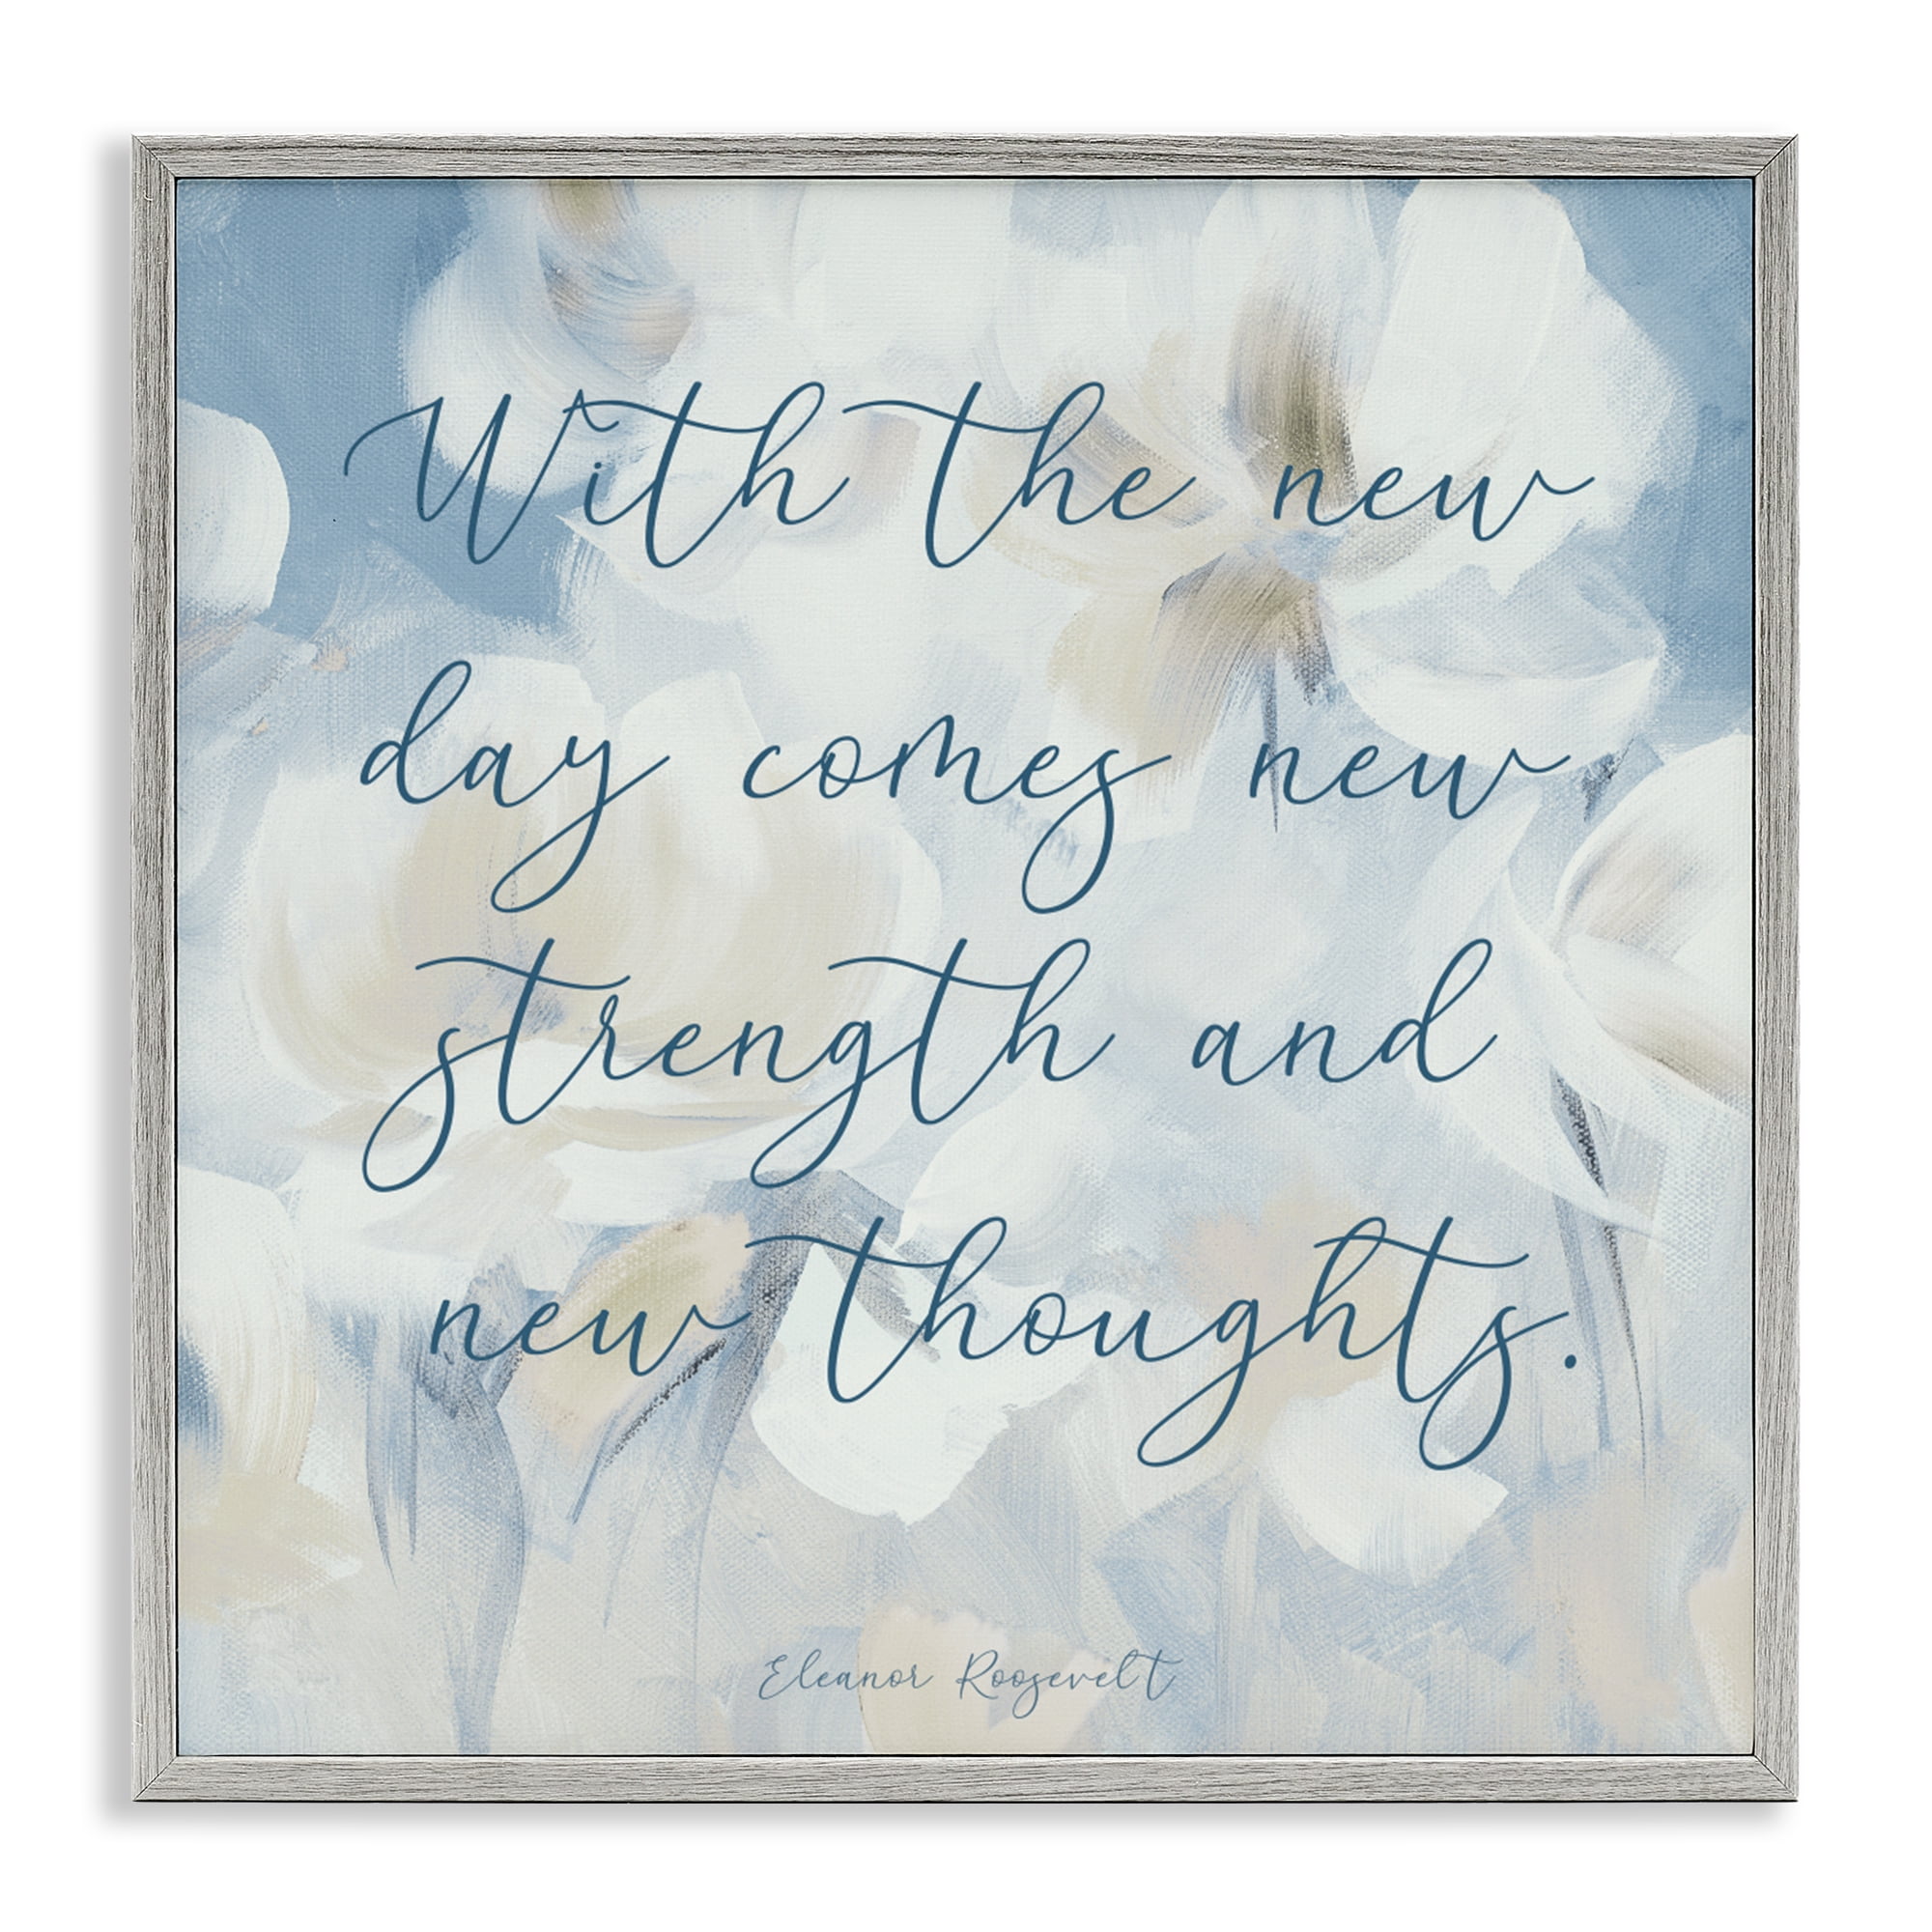 With the new
day comes new
strength and
new thoughts.
Eleanor Roosevelt